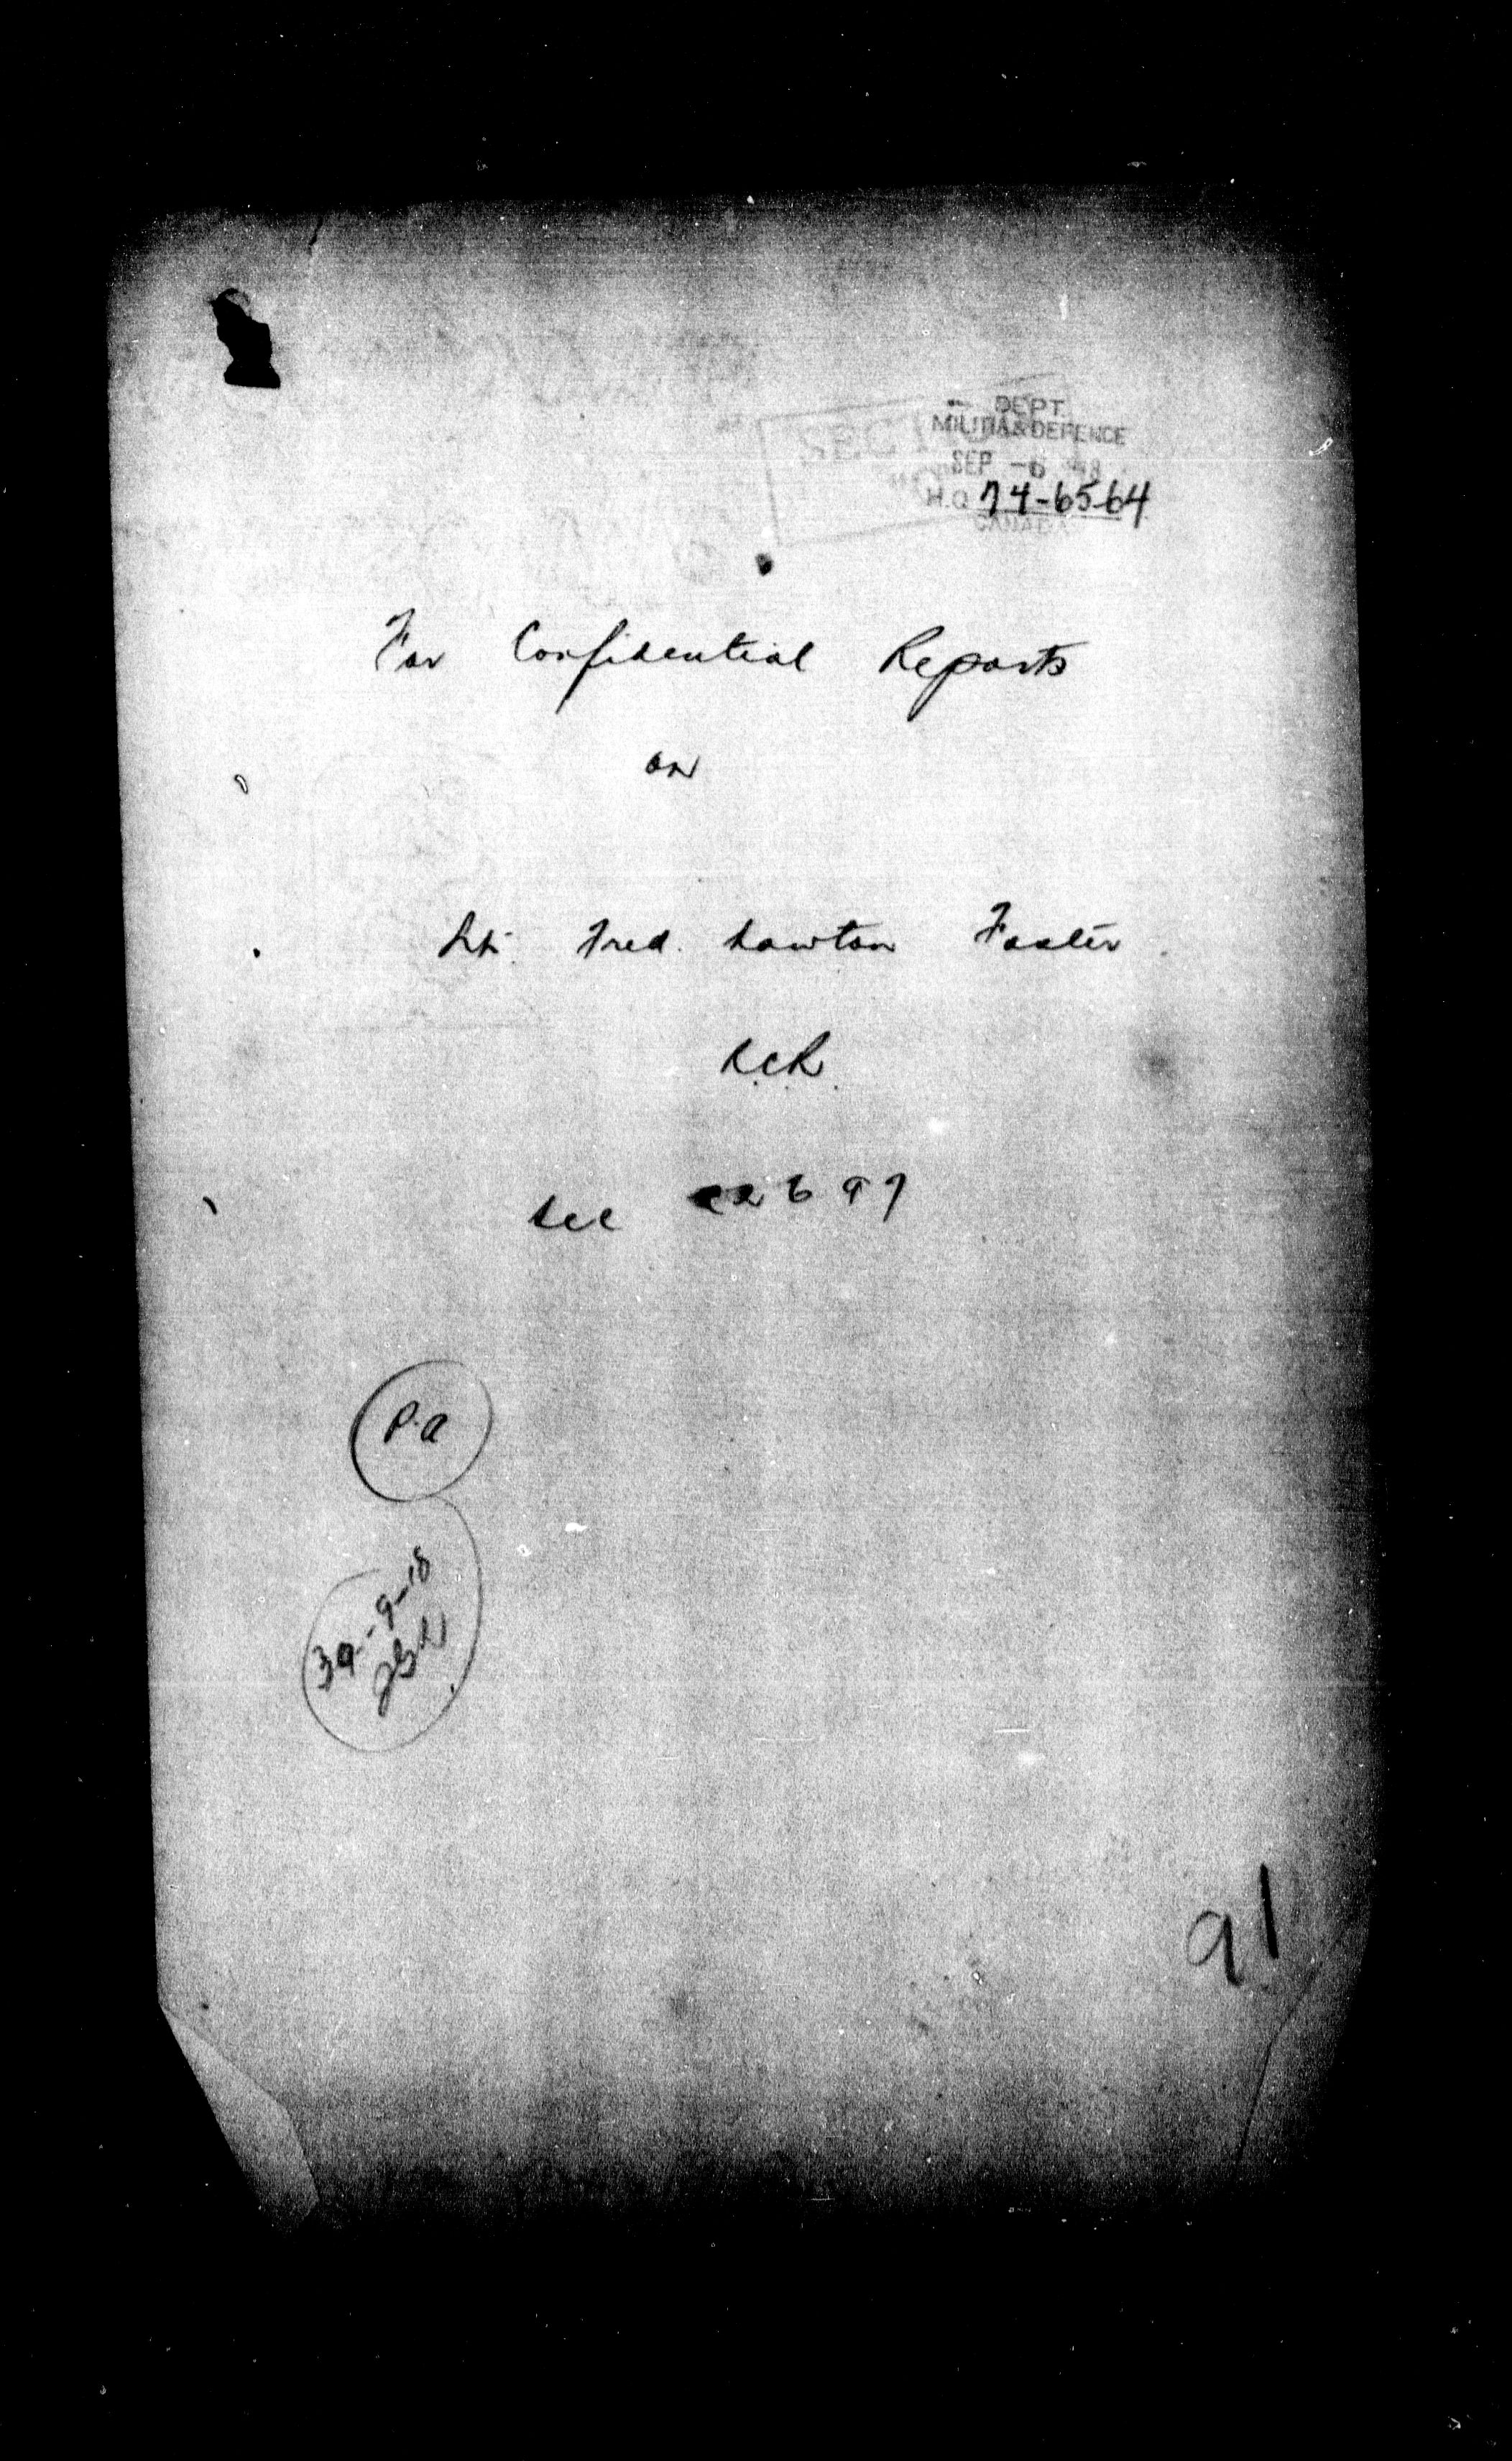 DEPT.
MILITIA & DEFENCE
SEP -6
H.Q. 74-6564
CANADA
For Confidential Reports
on
Lt. Fred. Lawton Foster.
R.C.R.
See 22697
P.A
30-9-18
91